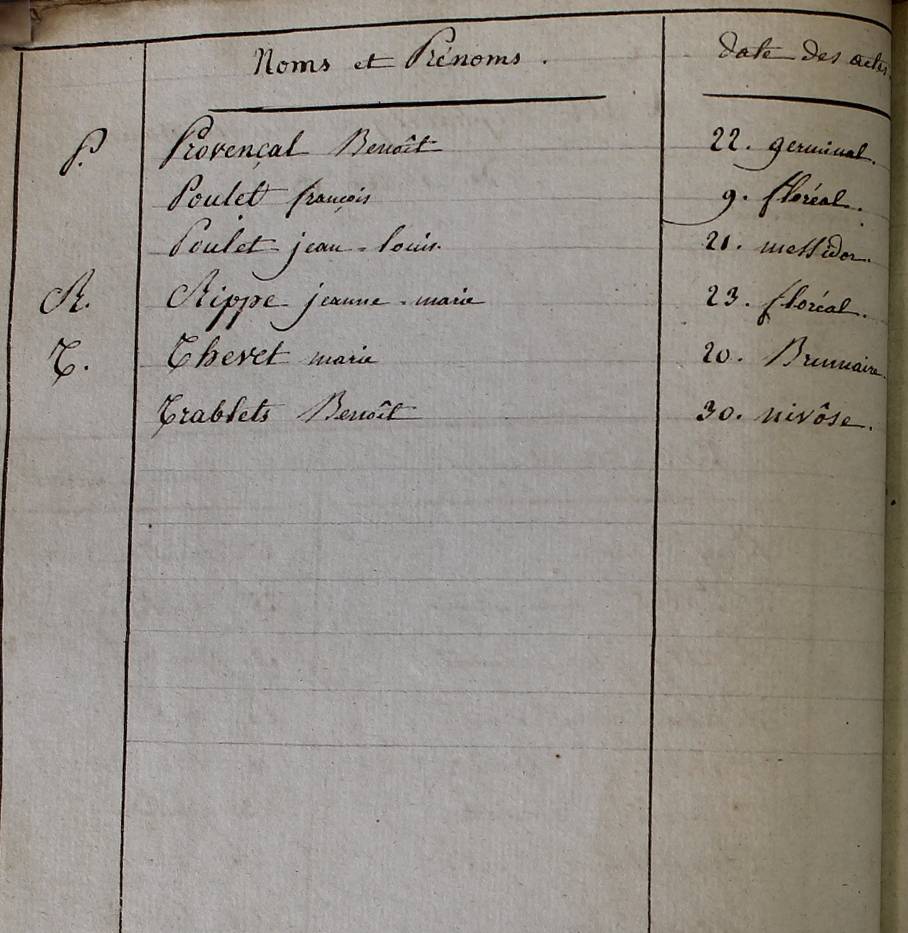 Noms et Prénoms . date des actes
P. Provençal Benoît 22. germinal.
Poulet françois 9. floréal.
Poulet jean-louis 21. messidor.
R. Rippe jeanne-marie 23. floréal.
T. Thevet marie 20. Brumaire.
Trablets Benoît 30. nivôse.